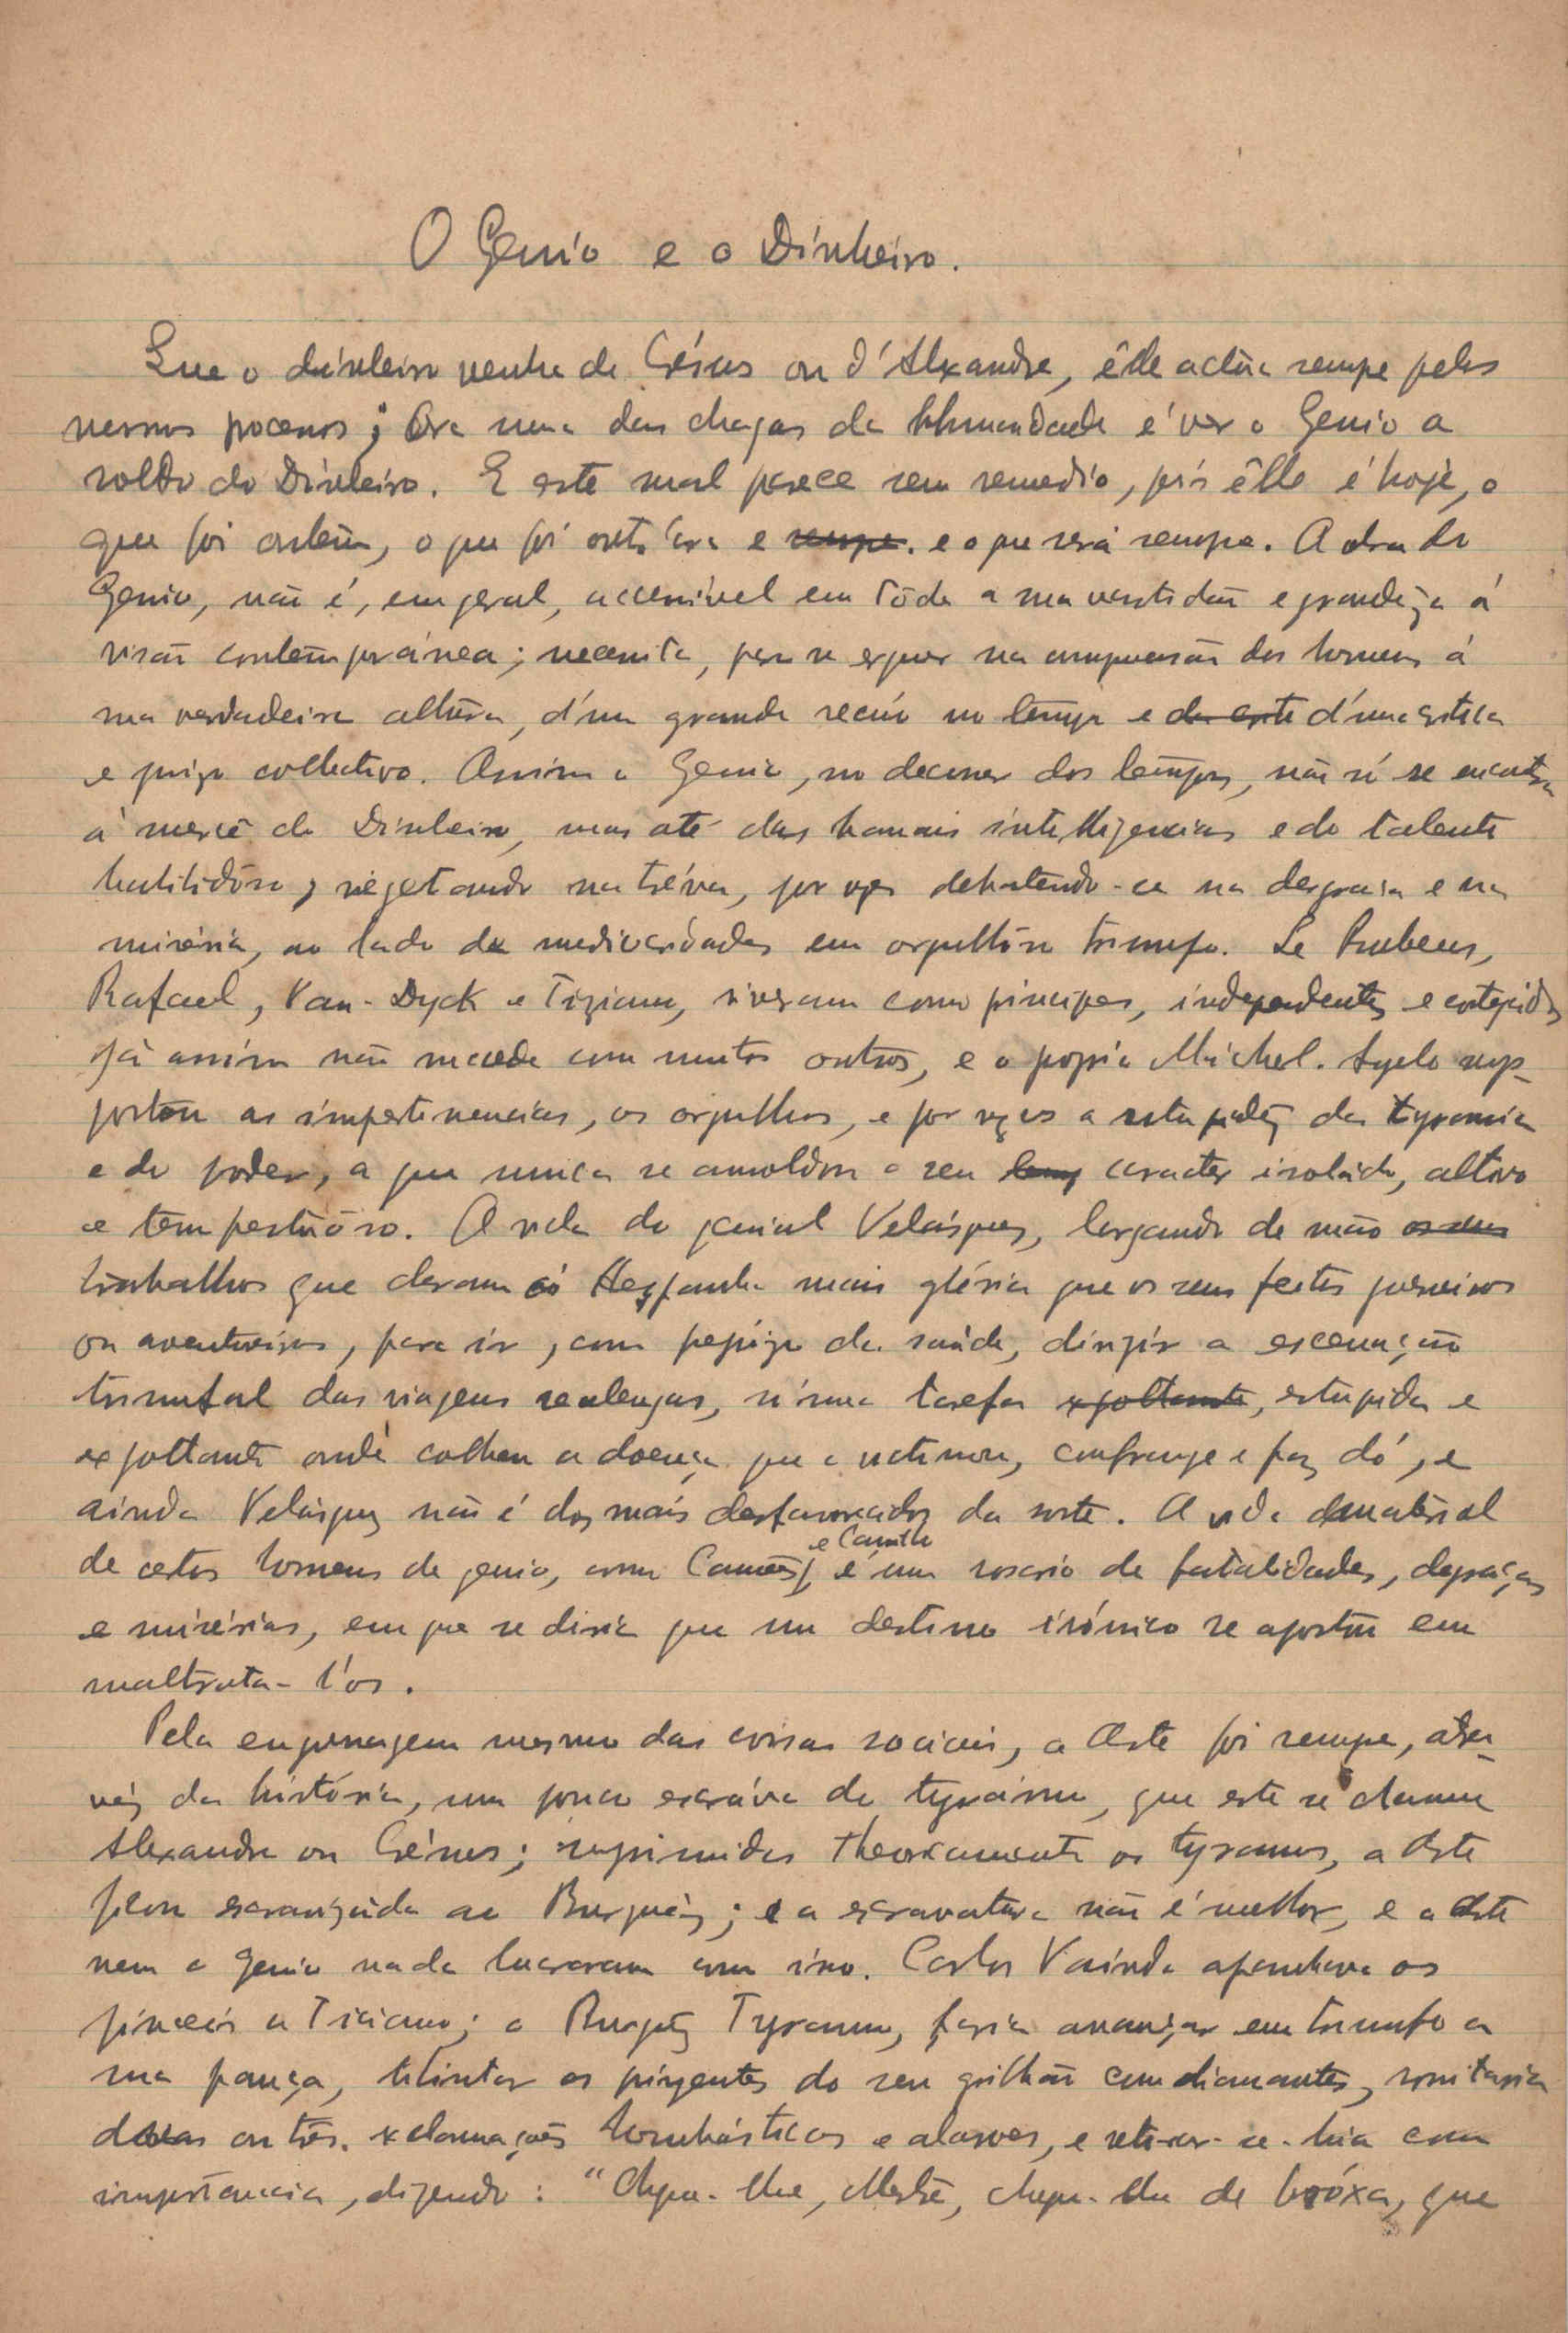 O Genio e o Dinheiro.
Que o dinheiro venha de Crésus ou d'Alexandre, êlle actúa sempre pelos
mesmos processos; Ora uma das chagas da Humanidade é ver o Genio a
soldo do Dinheiro. E este mal parece sem remedio, pois êlle é hoje, o
que foi ontem, o que foi outr'ora e sempre. e o que será sempre. A obra do
Genio, não é, em geral, accessivel em tôda a sua vastidão e grandeza á
visão contemporánea; necessita, para se erguer na compreensão dos homens á
sua verdadeira altura, d'um grande recúo no tempo e de este d'uma critica
e juizo collectivo. Assim o Genio, no decorrer dos tempos, não só se encontra
á mercê do Dinheiro, mas até das banais intelligencias e do talento
habilidôso, vegetando na tréva, por vezes debatendo-se na desgraça e na
miséria, ao lado de mediocridades em orgulhôso triumfo. Se Rubens,
Rafael, Van-Dyck e Tiziano, viveram como principes, independentes e cortejados
Já assim não sucede com muitos outros, e o proprio Michel-Angelo sup-
portou as impertinencias, os orgulhos, e por vezes a estupidez da tyrannia
e do poder, a que nunca se amoldou o seu caracter isolado, altivo
e tempestuôso. A vida do genial Velásquez, largando de mão os seus
trabalhos que deram á Hespanha mais glória que os seus feitos guerreiros
ou aventureiros, para ir, com prejuizo da saúde, dirigir a escenação
triumfal das viagens realengas, n'uma tarefa exgottante, estupida e
exgottante onde colheu a doença que o victimou, confrange e faz dó, e
ainda Velásquez não é dos mais desfavorecidos da sorte. A vida material
de certos homens de genio, como Camões e Camillo, é um rosario de fatalidades, desgraças
e misérias, em que se diria que um destino irónico se apostou em
maltrata-l'os.
Pela engrenagem mesmo das coisas sociais, a Arte foi sempre, atra-
véz da história, um pouco escráva do tyranno, que este se chamasse
Alexandre ou Crésus; suprimidos theoricamente os tyrannos, a Arte
ficou escravizada ao Burguêz; e a escravatura não é melhor, e a Arte
nem o genio nada lucraram com isso. Carlos V ainda apanhava os
pinceis a Ticiano; o Burguêz Tyranno, faria avançar em triumfo a
sua pança, tilintar os pingentes do seu grilhão com diamantes, vomitaria
duas ou três exclamações bombásticas e alarves, e retirar-se-hia com
importancia, dizendo: "Chegue-lhe, Mestre, chegue-lhe de bróxa, que